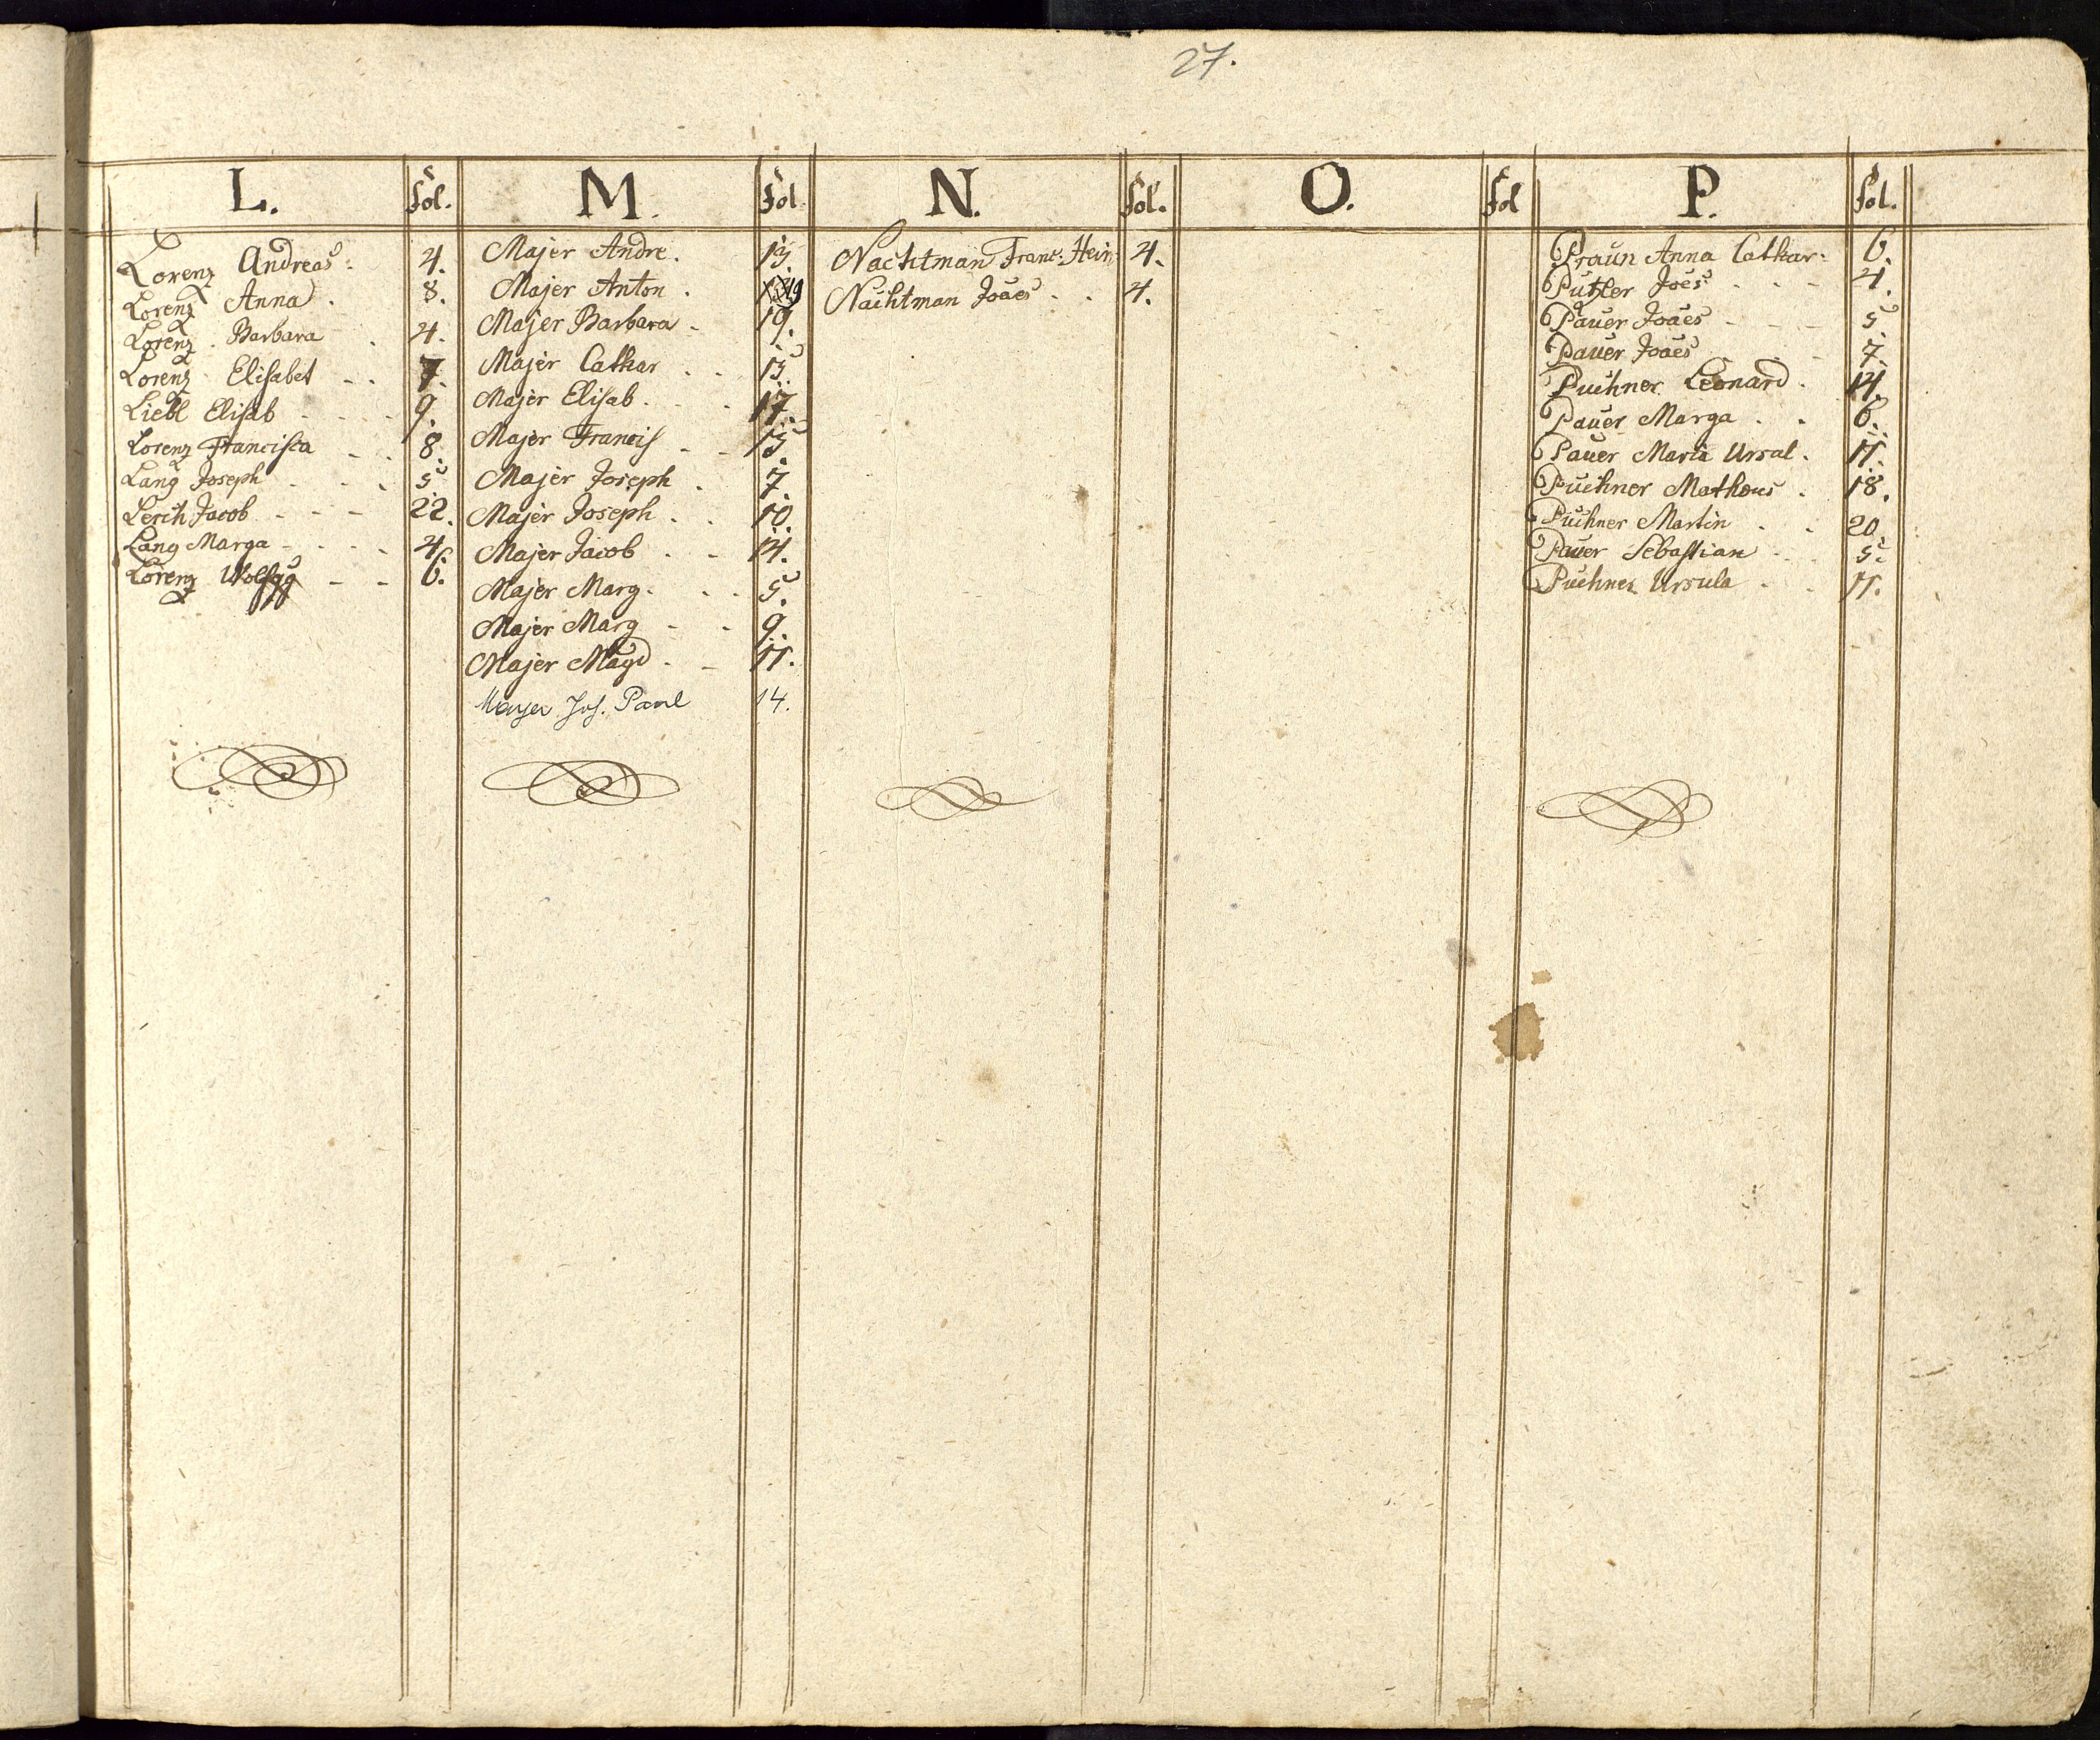 27.
L. Fol.
Lorenz Andreas. 4.
Lorenz Anna. 8.
Lorenz Barbara . 4.
Lorenz Elisabet - . 7.
Liebl Elisab - - - . 9.
Lorenz Francisca - . 8.
Lang Joseph . - . 5.
Lerch Jacob - - - 22.
Lang Marga - . . . 4.
Lorenz Wolfgg - - 6.
M. Fol.
Majer Andre. 13.
Majer Anton. 19
Majer Barbara - 19.
Majer Cathar . . 15.
Majer Elisab. - . 17.
Majer Francis - - 15.
Majer Joseph . 7.
Majer Joseph . . 10.
Majer Jacob . - 14.
Majer Marg. . . 5.
Majer Marg - - 9.
Majer Magd . - 11.
Mayer Jos. Paul 14.
N. Fol.
Nachtman Franc. Hein 4.
Nachtman Joaes . . 4.
O. Fol
P. Fol.
Praun Anna Cathar. 6.
Putzler Joes - - - 4.
Pauer Joaes - - - 5.
Pauer Joaes - - 7.
Puchner Leonard. 14.
Pauer Marga . . 6.
Pauer Maria Ursal. 11.
Puchner Matheus . 18.
Puchner Martin . . 20.
Pauer Sebastian - . 5.
Puchner Ursula . . 11.